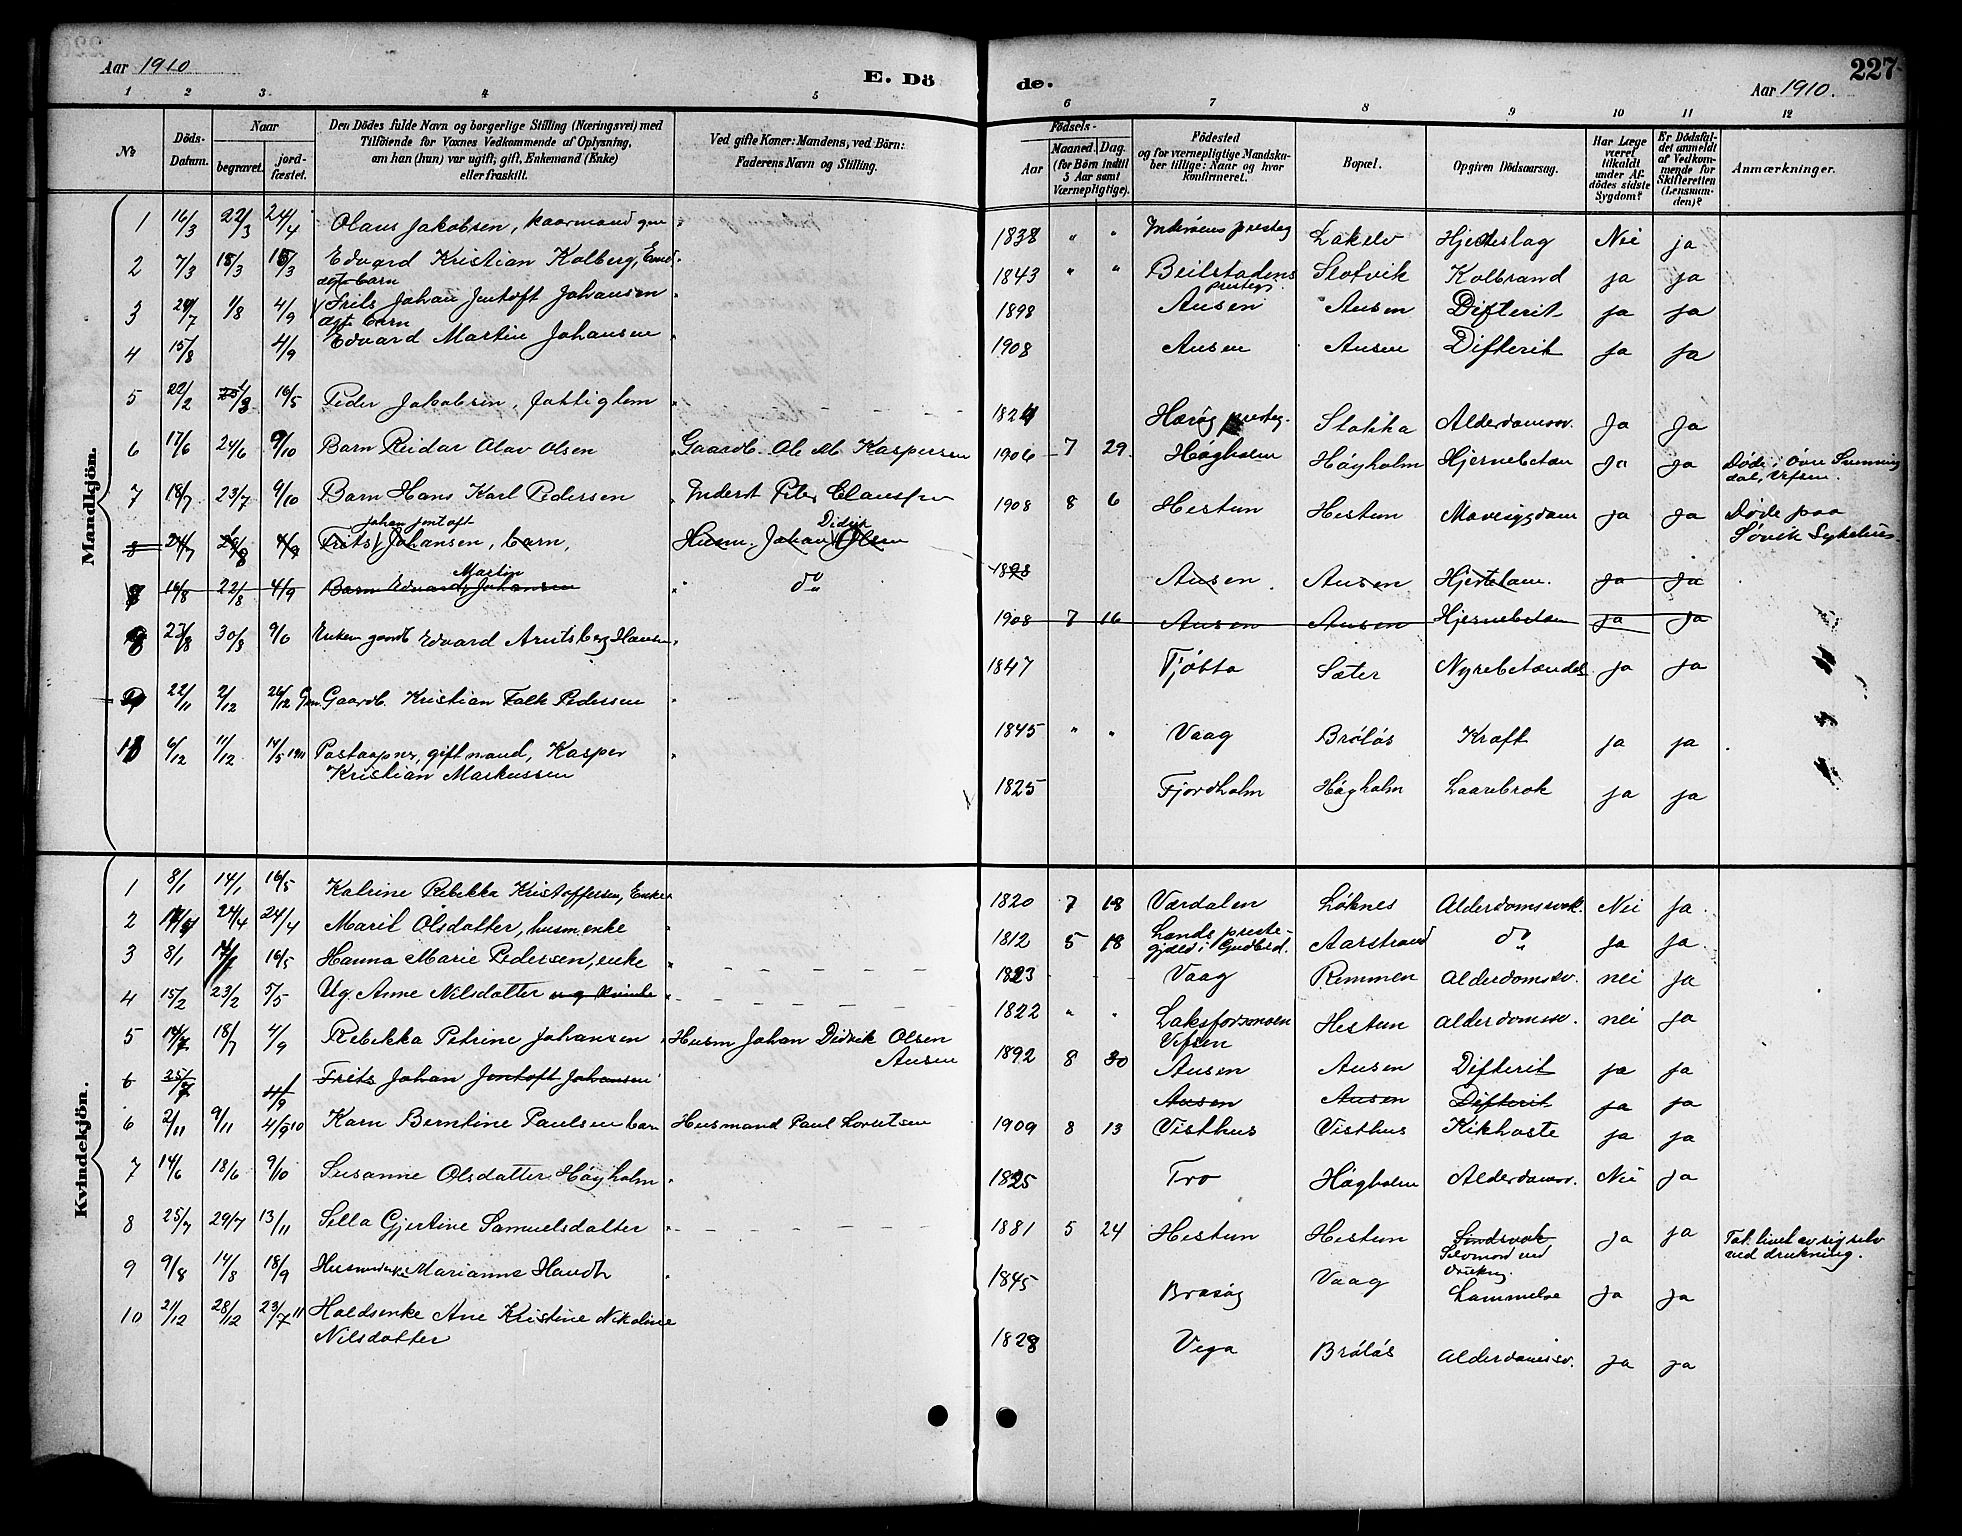 Aar 1910
E. Dö
de.
Aar 1910.
227
1 2 3. 4 5
6 7 8 9 10 11 12
No
Döds-Datum.
Naar
begravet.
jordfæstet.
Den Dödes fulde Navn og borgerlige Stilling (Næringsvei) med
Tilföiende for Voxnes Vedkommende af Oplysning,
om han (hun) var ugift, gift, Enkemand (Enke)
eller fraskilt.
Ved gifte Koner: Mandens, ved Börn:
Faderens Navn og Stilling.
Födsels-
Aar
Maaned. Dag.
(for Börn indtil
5 Aar samt
Værnepligtige).
Födested
og for værnepligtige Mandska-
ber tillige: Naar og hvor
konfirmeret.
Bopæl.
Opgiven Dödsaarsag.
Har Læge
været
tilkaldt
under Af-
dödes sidste
Sygdom?
Er Dödsfal-
det anmeldt
af Vedkom-
mende for
Skifteretten
(Lensman-
den)?
Anmærkninger.
Mandkjön.
1 16/3 22/3 24/4 Olaus Jakobsen, kaarmand gm " 1838 " " Inderøens presteg Lakselv Hjerteslag Nei ja
2 7/3 18/3 18/3 Edvard Kristian Kolberg, Enkd. 1843 " " Beilstadens presteg. Slotvik Kolbrand ja ja
3 29/7 1/8 4/9 ægte barn Frits Johan Jentoft Johansen " 1898 Ausen Ausen Difterit ja ja
4 15/8 4/9 ægte barn Edvard Martin Johansen " 1908 Ausen Ausen Difterit ja ja
5 22/2 1/3 16/5 Peder Jakobsen, fattiglem " 1824 Herøy presteg. Stokka Alderdomssv. Ja Ja
6 17/6 24/6 9/10 Barn Reidar Olav Olsen Gaardb. Ole M. Kaspersen 1906 7 29 Høyholm Høyholm Hjernebetæn Ja Ja Døde i Øvre Svenning
dal, Vefsen.
7 18/7 23/7 9/10 Barn Hans Karl Pedersen Inderst Peter Clausen 1908 8 6 Hestun Hestun Mavesygdom ja Ja Døde paa
Søvik Sykehus
8 24/7 26/8 4/9 Frits Johan Jentoft Johansen, barn, Husm. Johan Didrik Olsen 1898 Ausen. Ausen Hjertelam. ja Ja
9 16/8 22/8 4/9 Barn Edvard Martin Johansen " do 1908 7 16 Ausen Ausen Hjernebetæn ja ja
8 23/8 30/8 9/0 Enkem gaardb Edvard Arntsberg Hansen " 1847 Tjøtta Sæter Nyrebetændels ja ja
9 22/11 2/12 26/12 Gm. Gaardb. Kristian Falk Pedersen " 1845 " " Vaag Brøløs Kræft ja ja
10 6/12 11/12 14/5 1911 Postaapner, gift mand, Kasper
Kristian Markussen " 1825 Fjordholm Høyholm Laarebrok ja ja
Kvindekjön.
1 8/1 14/1 16/5 Katrine Rebekka Kristoffersen, Enke 1820 7 18 Værdalen Løknes Alderdomssvak. Nei Ja
2 24/4 24/4 Marit Olsdatter, husm.enke 1812 5 18 Lands preste-
gjæld i Gudbrd. Aarstrand do ja ja.
3 8/1 14/1 16/5 Hanna Marie Pedersen, enke " 1823 Vaag Remmen Alderdomssv. nei ja
4 15/2 23/2 5/5 Ug. Anne Nilsdatter ug kvinde " 1822 " " Laksforsmoen
Vefsen Hestun Alderdomssv. nei ja
5 14/7 18/7 4/9 Rebekka Petrine Johansen Husm Johan Didrik Olsen
Ausen 1892 8 30 Ausen Ausen Difterit ja ja
6 25/7 4/9 Frits Johan Jentoft Johansen Ausen Ausen Difterit ja ja
6 2/11 9/11 4/9 10 Karn Berntine Paulsen barn Husmand Paul Lorentsen 1909 8 13 Visthus Visthus Kikhoste ja ja
7 14/6 18/6 9/10 Susanne Olsdatter Høyholm " 1825 Tro Høyholm Alderdomssv. Nei ja
8 25/7 29/7 13/11 Sella Gjertine Samuelsdatter " 1881 5 24 Hestun Hestun Sindsvak
Selvmord ved
drukng. ja ja Tat livet av sig selv
ved drukning.
9 9/8 14/8 18/9 Marianne Haudh " 1845 Brasøy Vaag Lammelse Ja ja
10 21/12 28/12 23/7 11 Holdsenke Ane Kristine Nikoline
Nilsdatter 1828 Vega Brøløs Alderdomssv. ja ja